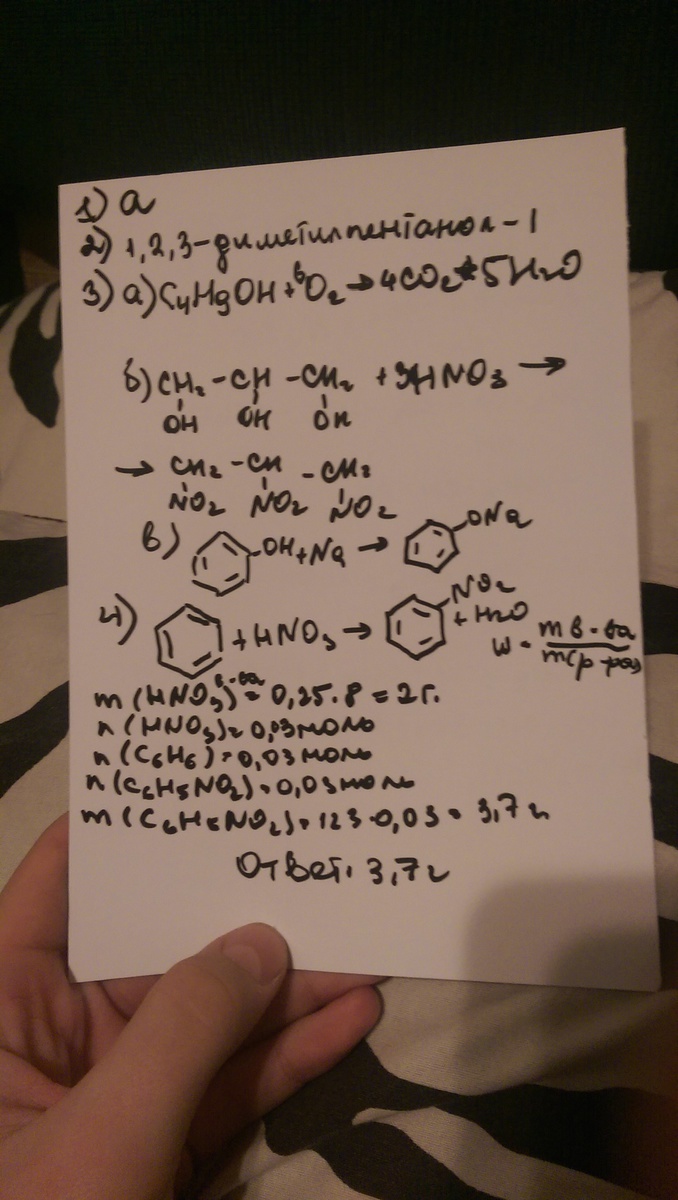 1) а
2) 1,2,3-диметилпентанол-1
3) а) C4H9OH + 6O2 → 4CO2 + 5H2O
б) CH2 - CH - CH2 + 3HNO3 →
OH OH OH
→ CH2 - CH - CH2
NO2 NO2 NO2
в) OH + Na → ONa
4) + HNO3 → NO2 + H2O
W = m в-ва / m(р-ра)
m (HNO3) в-ва = 0,25·8 = 2г.
n (HNO3) = 0,03моль
n (C6H6) = 0,03моль
n (C6H5NO2) = 0,03моль
m (C6H5NO2) = 123·0,03 = 3,7г
Ответ: 3,7г